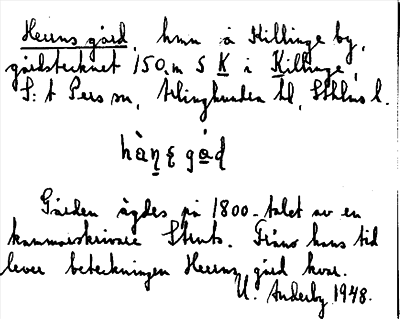 Herrns gård, hmn å Killinge by,
gårdstecknet 150 m S K i Killinge,
S:t Pers sn, Ærlinghundra hd, Sthlms l.
hàṇɛ gåd
Gården ägdes på 1800-talet av en
kammarskrivare Struts. Från hans tid
lever beteckningen Herrns gård kvar.
U. Anderby 1948.